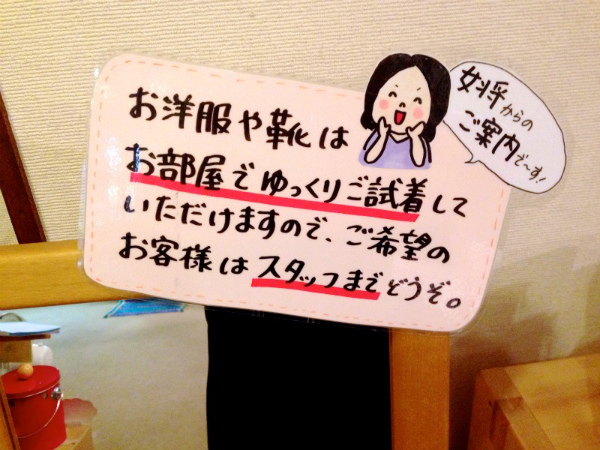 お洋服や靴は
お部屋でゆっくりご試着して
いただけますので、ご希望の
お客様はスタッフまでどうぞ。
女将からの
ご案内で〜す!